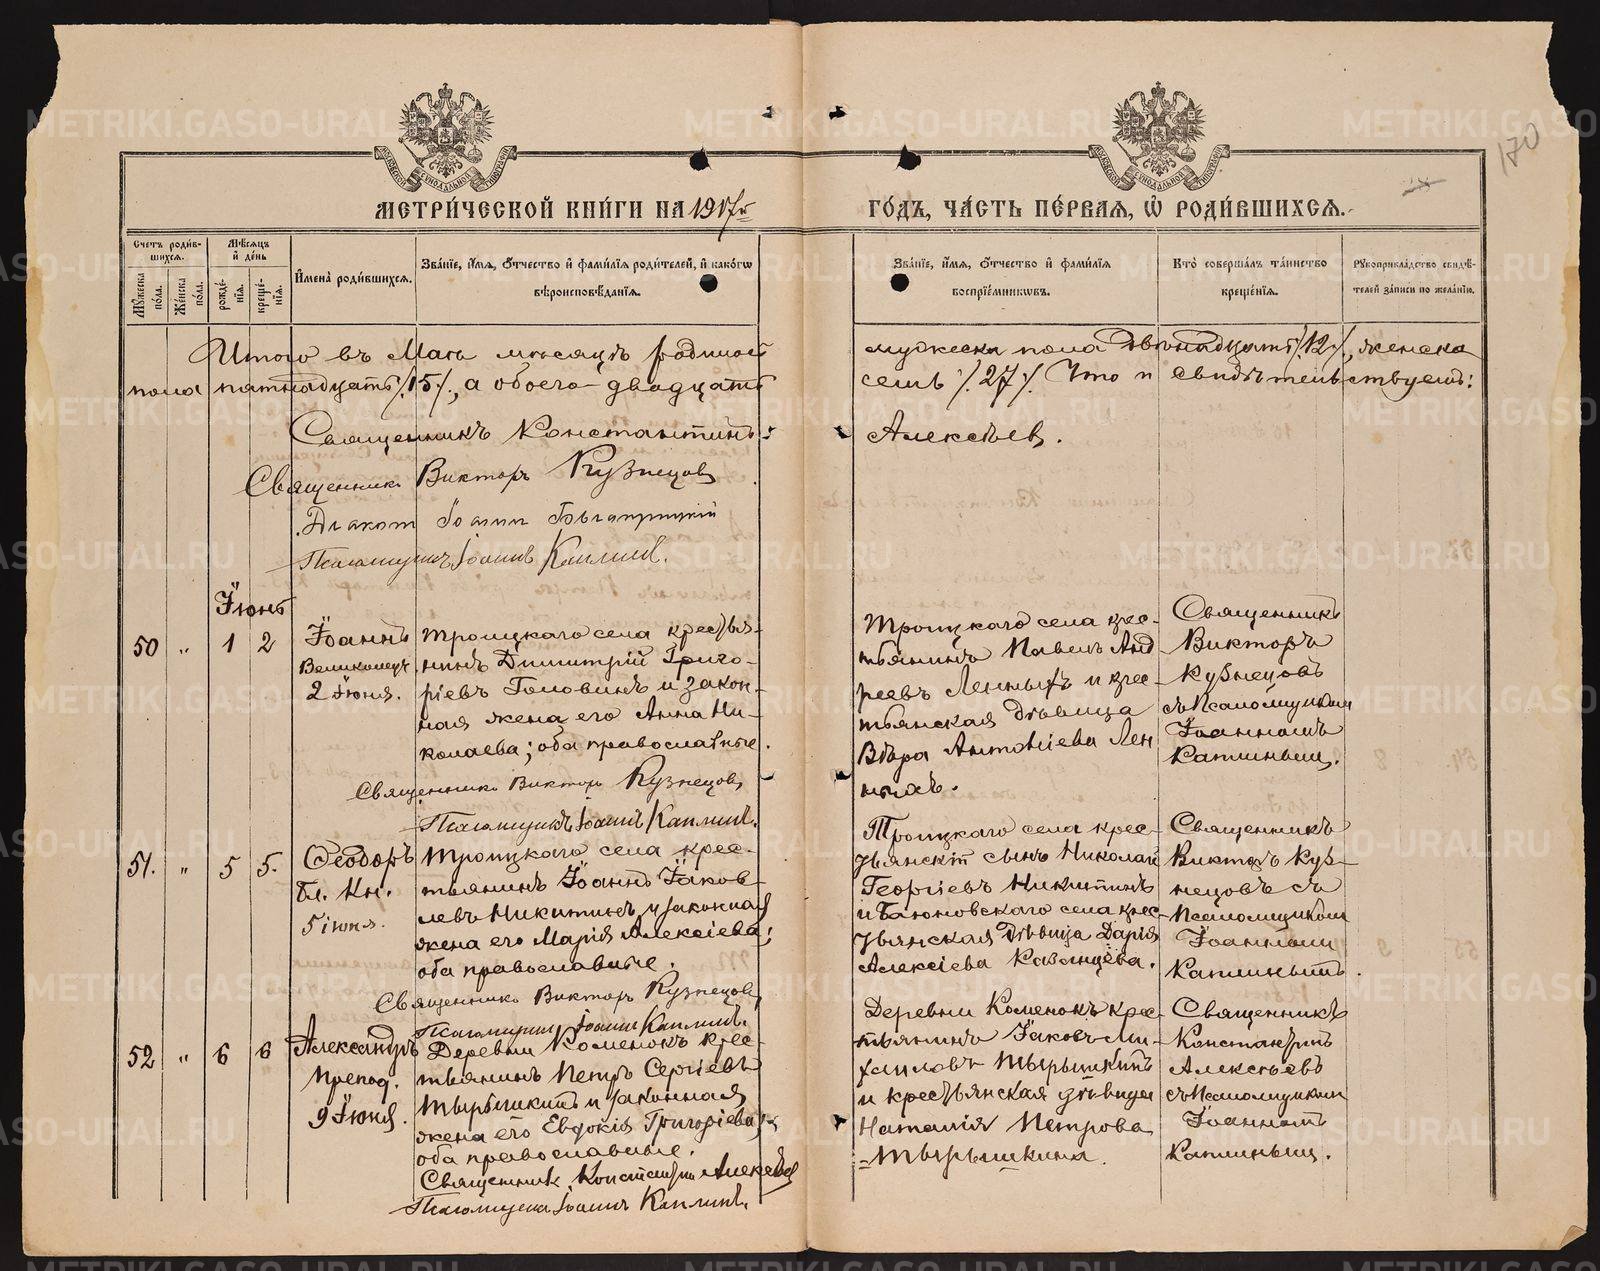 170
МОСКОВСКОЙ СѴНОДАЛЬНОЙ ТИПОГРАФІИ
МОСКОВСКОЙ СѴНОДАЛЬНОЙ ТИПОГРАФІИ
МЕТРИ́ЧЕСКОЙ КНИ́ГИ НА 1917й ГО́ДЪ, ЧА́СТЬ ПЕ́РВАЯ, Ѡ҆ РОДИ́ВШИХСЯ.
Счетъ роди́в-
шихся.
Мꙋжеска по́ла.
Же́нска по́ла.
Мѣ́сяцъ
и҆ де́нь
рожде́-
нїя.
креще́-
нїя.
И҆мена̀ роди́вшихся.
Зва́нїе, и҆́мя, ѻ҆́тчество и҆ фами́лїя роди́телей, и҆ како́гѡ
вѣроисповѣ́данїя.
Зва́нїе, и҆́мя, ѻ҆́тчество и҆ фами́лїя
воспрїе́мникѡвъ.
Кто̀ соверша́лъ та́инство
креще́нїя.
Рꙋкоприкла́дство свидѣ́-
телей за́писи по жела́нїю.
Итого въ Маѣ мѣсяцѣ родилось мужеска пола двѣнадцать /.12./, женска
пола пятнадцать /.15./, а обоего двадцать семь /.27./. Что и свидѣтельствуемъ:
Священникъ Константинъ Алексѣев.
Священникъ Викторъ Кузнецовъ
Діаконъ Іоаннъ
Псаломщикъ Іоаннъ Каплинъ.
Іюнь
50 " 1 2
Іоаннъ
Великомуч.
2 Іюня.
Троицкаго села крестья-
нинъ Димитрій Григо-
ріевъ Головинъ и закон-
ная жена его Анна Ни-
колаева; оба православные.
Священникъ Викторъ Кузнецовъ
Псаломщикъ Іоаннъ Каплинъ.
Троицкаго села крес-
тьянинъ Павелъ Анд-
реевъ Ленныхъ и крес-
тьянская дѣвица
Вѣра Антоніева Лен
ныхъ.
Священникъ
Викторъ
Кузнецовъ
съ Псаломщикомъ
Іоанномъ
Каплинымъ.
51. " 5 5.
Ѳеодоръ
Бл. Кн.
5 іюня.
Троицкаго села крес-
тьянинъ Іоаннъ Іаков-
левъ Никитинъ и законная
жена его Марія Алексіева;
оба православные.
Священникъ Викторъ Кузнецовъ
Псаломщикъ Іоаннъ Каплинъ.
Троицкаго села крес-
тьянскій сынъ Николай
Георгіевъ Никитинъ
и села крес-
тьянская дѣвица Дарія
Алексіева Казанцева.
Священникъ
Викторъ Куз-
нецовъ съ
Псаломщикомъ
Іоанномъ
Каплинымъ.
52 " 6 6
Александръ
Препод.
9 Іюня.
Деревни Коменокъ крес-
тьянинъ Петръ Сергіевъ
Тырышкинъ и законная
жена его Евдокія Григоріева;
оба православные.
Священникъ Константинъ Алексѣевъ
Псаломщикъ Іоаннъ Каплинъ.
Деревни Коменокъ крес-
тьянинъ Іаковъ Ми-
хаиловъ Тырышкинъ
и крестьянская дѣвица
Наталія Петрова
Тырышкина.
Священникъ
Константинъ
Алексѣевъ
съ Псаломщикомъ
Іоанномъ
Каплинымъ.
METRIKI.GASO-URAL.RU